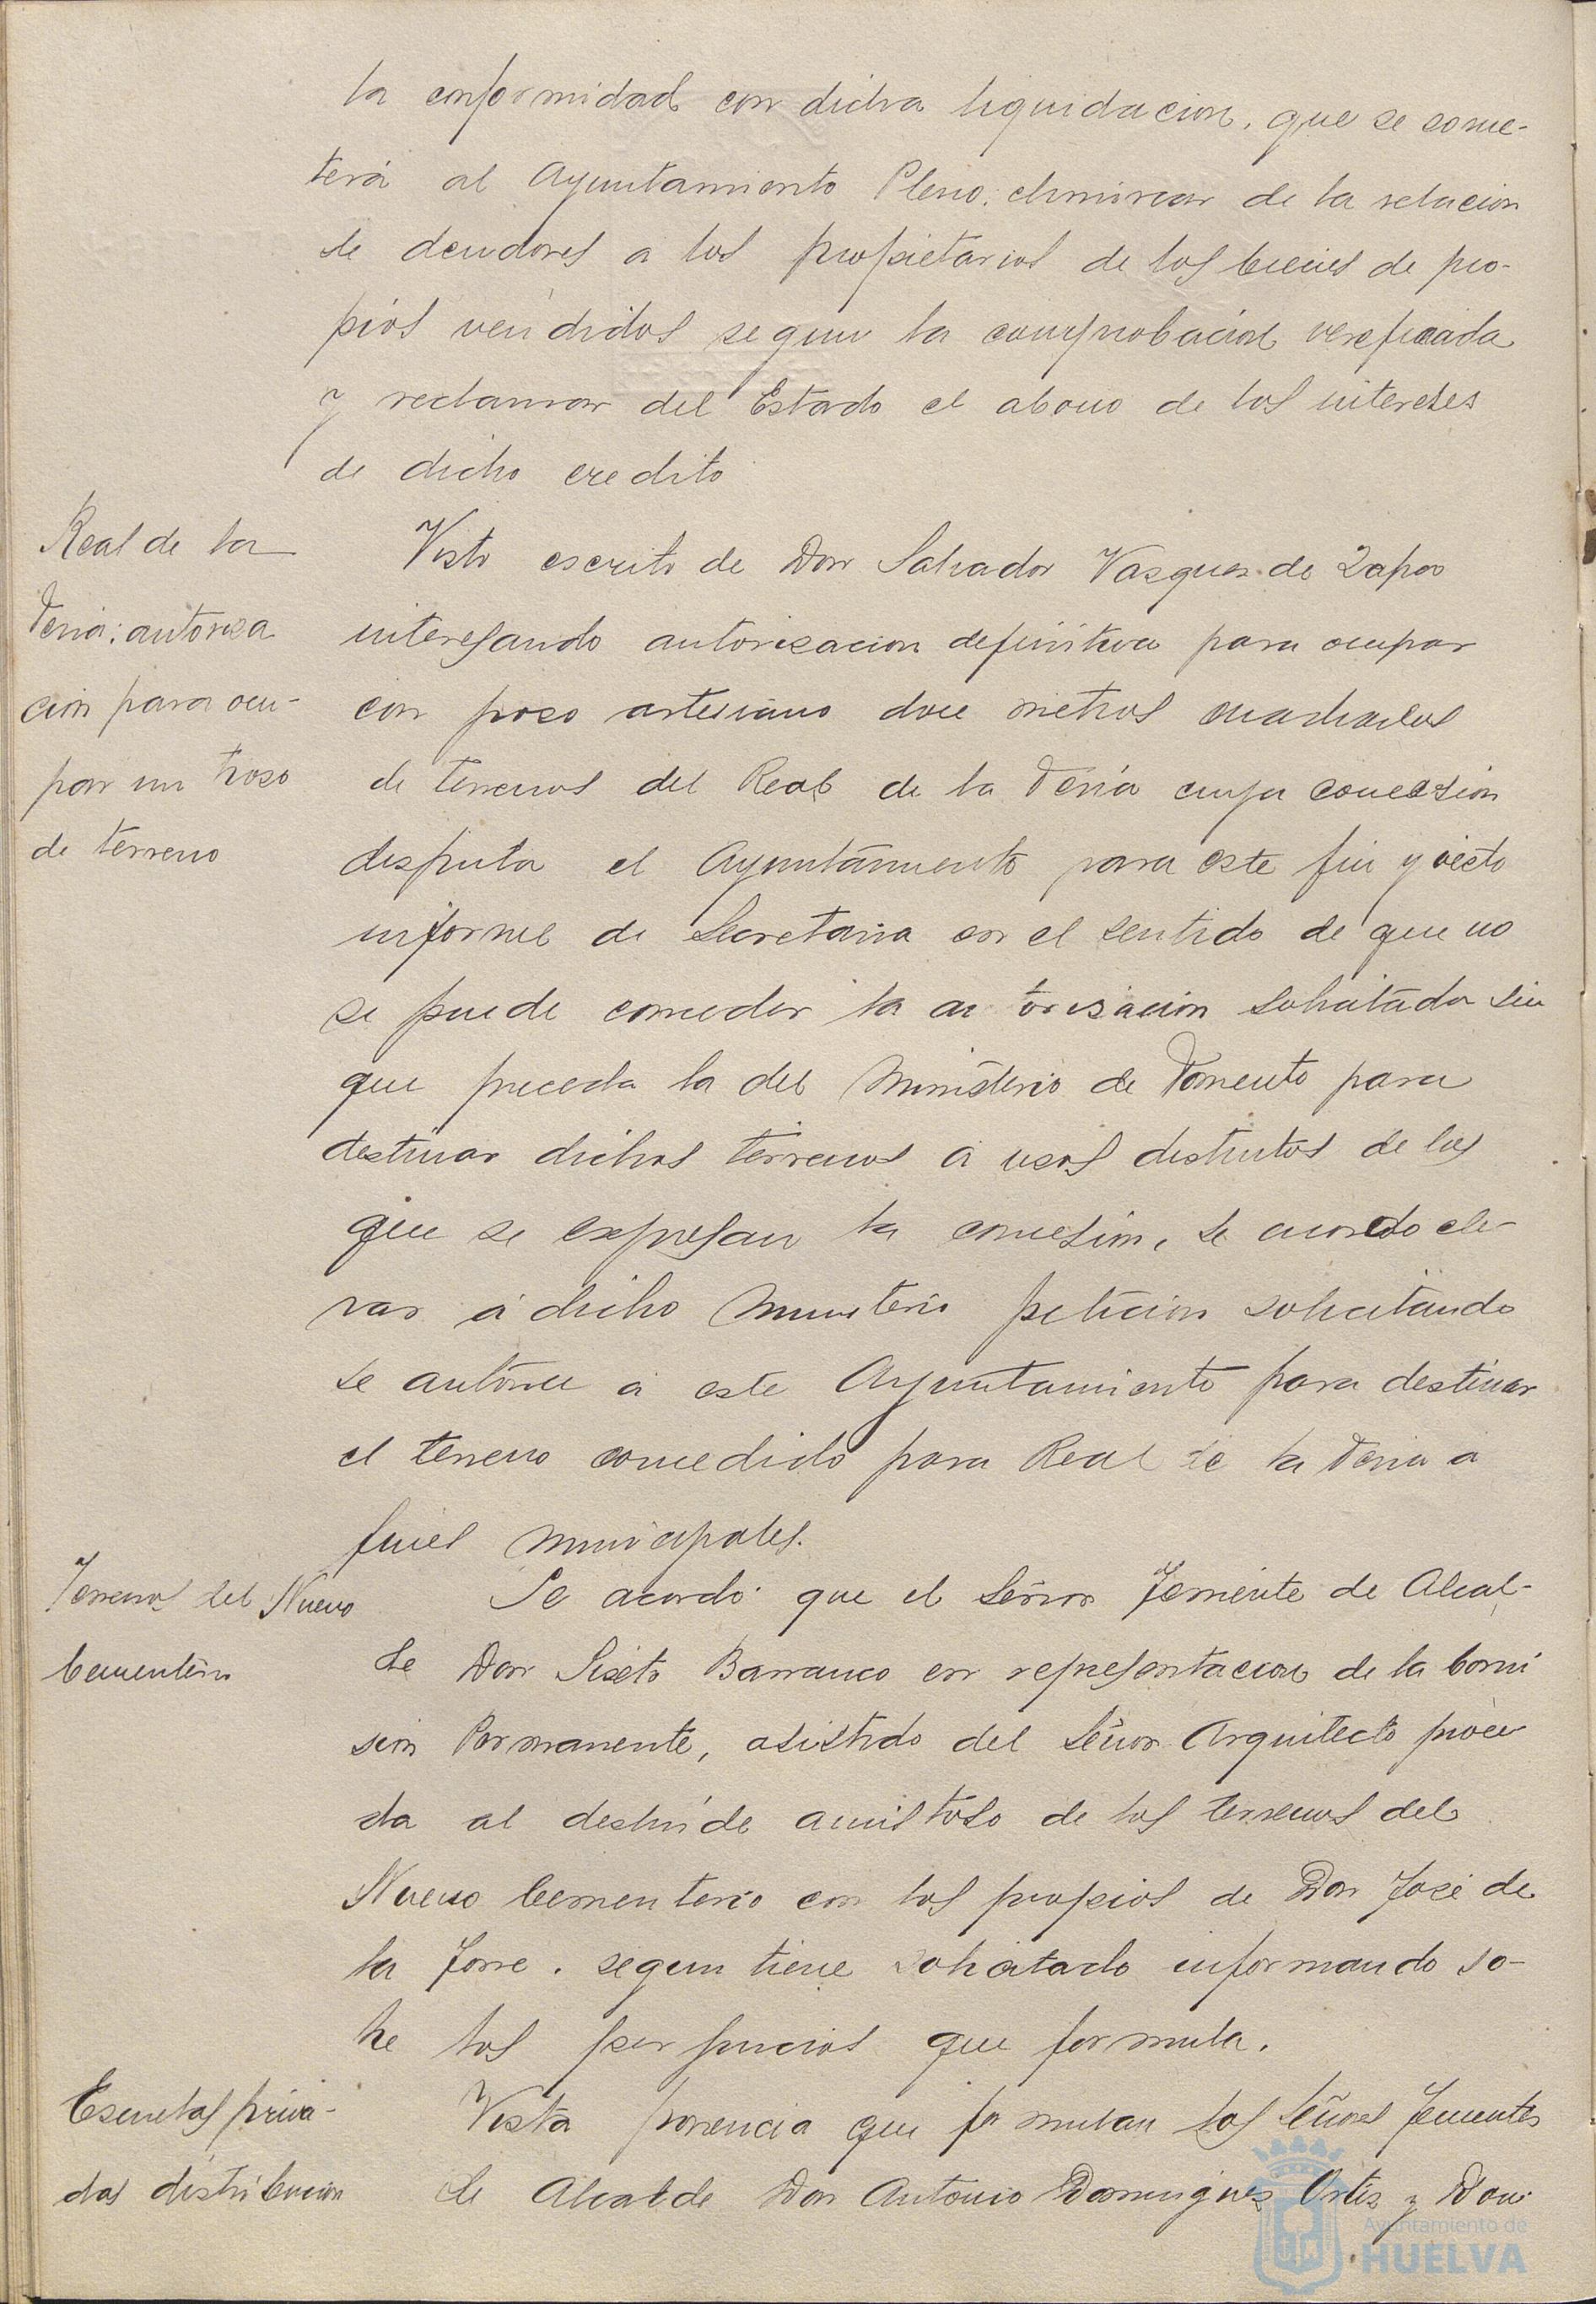 la conformidad con dicha liquidacion, que se some-
terá al Ayuntamiento Pleno; eliminar de la relacion
de deudores a los propietarios de los bienes de pro-
pios vendidos segun la comprobacion verificada
y reclamar del Estado el abono de los intereses
de dicho credito
Real de la
Feria: autoriza
cion para ocu-
par un trozo
de terreno
Visto escrito de Don Salvador Vazquez de Zapor
interesando autorizacion definitiva para ocupar
con pozo artesiano doce metros cuadrados
de terrenos del Real de la Feria cuya concesion
disfruta el Ayuntamiento para este fin y visto
informe de Secretaria en el sentido de que no
se puede conceder la autorizacion solicitada sin
que preceda la del Ministerio de Fomento para
destinar dichos terrenos á usos distintos de los
que se expresan la concesion, se acordo ele-
var á dicho Ministerio peticion solicitando
se autorice á este Ayuntamiento para destinar
el terreno concedido para Real de la Feria á
fines municipales.
Terrenos del Nuevo
Cementerio
Se acordó que el Señor Teniente de Alcal-
de Don Sixto Barranco en representacion de la Comi
sion Permanente, asistido del Señor Arquitecto proce
da al deslinde amistoso de los terrenos del
Nuevo Cementerio con los propios de Don José de
la Torre. segun tiene solicitado informando so-
bre los perjuicios que formula.
Escuelas priva-
das distribucion
Vista ponencia que formulan los Señores Tenientes
de Alcalde Don Antonio Dominguez Ortiz y Don
Ayuntamiento de
HUELVA